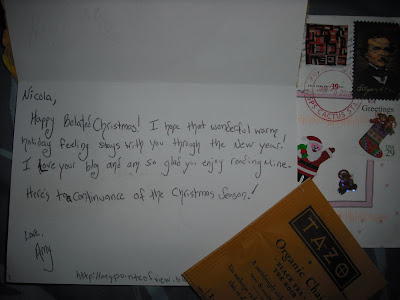 Nicola,
Happy Belated Christmas! I hope that wonderful warm
holiday feeling stays with you through the New Year!
I love your blog and am so glad you enjoy reading mine.
Here's to a Continuance of the Christmas Season!
Love,
Amy
39
Greetings
USA
29
TAZO
Organic